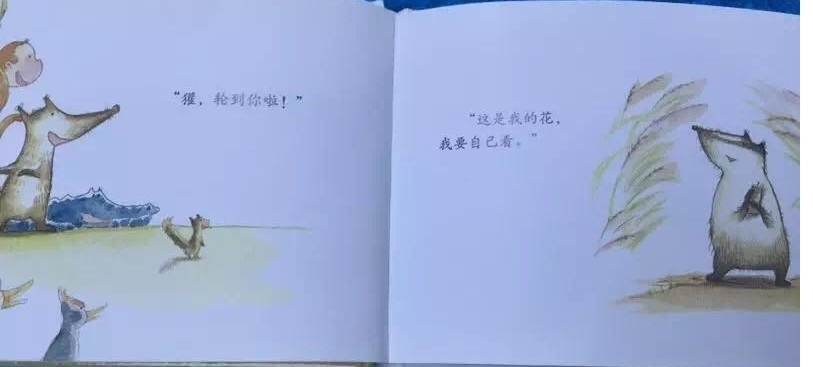 “獾，轮到你啦！”
“这是我的花，
我要自己看。”